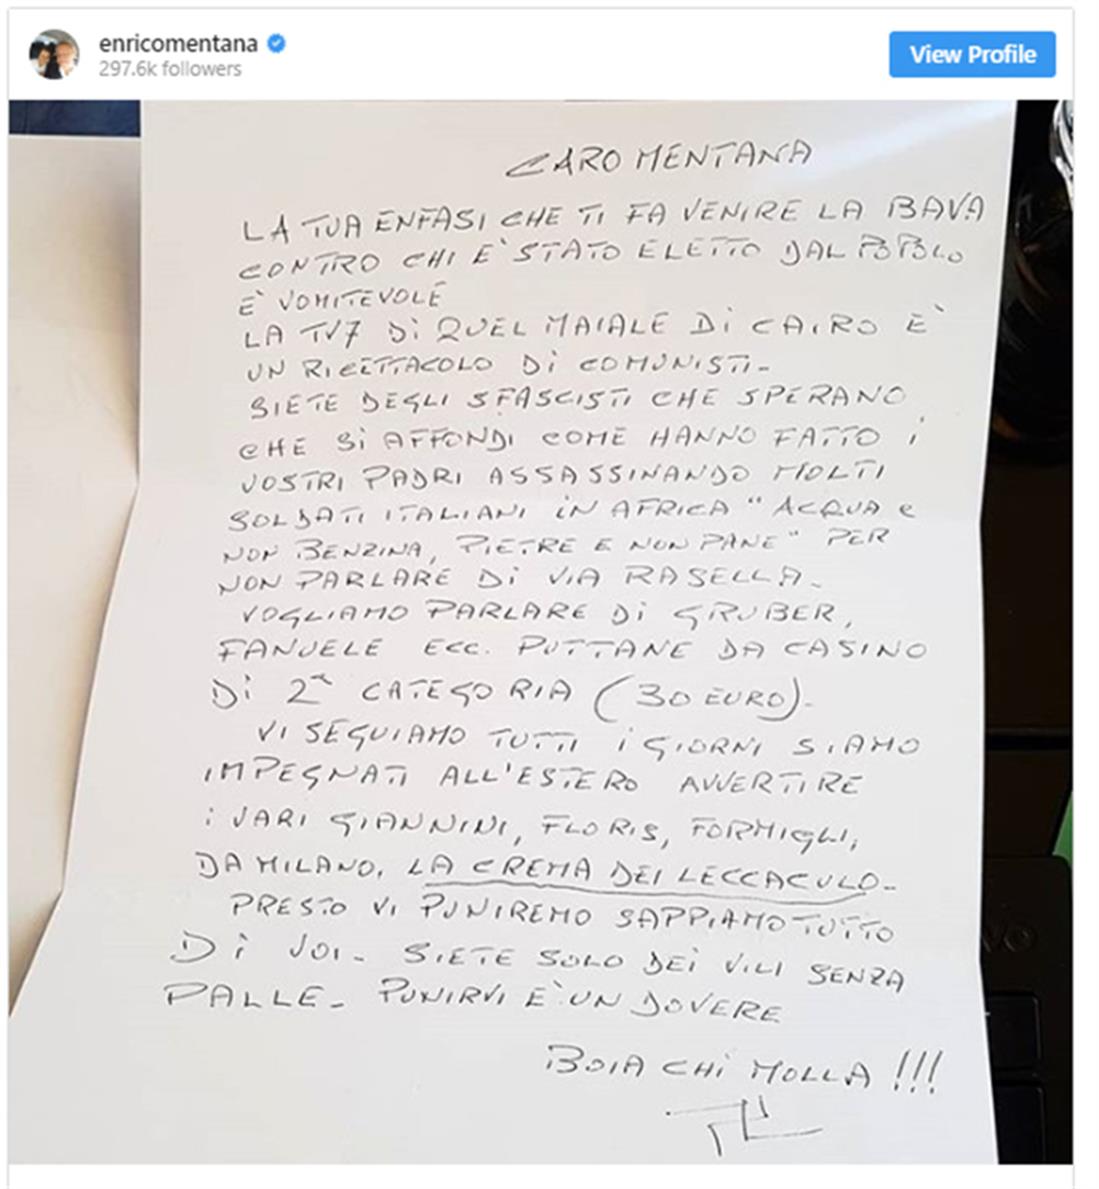 enricomentana
297.6k followers
View Profile
CARO MENTANA
LA TUA ENFASI CHE TI FA VENIRE LA BAVA
CONTRO CHI E' STATO ELETTO DAL POPOLO
E' VOMITEVOLE
LA TV7 Di QUEL MAIALE Di CAIRO E'
UN RICETTACOLO Di COMUNISTI-
SIETE DEGLI SFASCISTI CHE SPERANO
CHE Si AFFONDI COME HANNO FATTO i
VOSTRI PADRI ASSASSINANDO MOLTI
SOLDATI ITALIANI iN AFRICA "ACQUA e
NON BENZINA, PIETRE E NON PANE" PER
NON PARLARE Di VIA RASELLA-
VOGLIAMO PARLARE Di GRUBER,
FANUELE ECC. PUTTANE DA CASINO
Di 2ª CATEGORIA (30 EURO)-
Vi SEGUIAMO TUTTI i GIORNI SIAMO
IMPEGNATI ALL'ESTERO AVVERTIRE
i VARI GIANNINI, FLORIS, FORMIGLI,
DA MILANO, LA CREMA DEI LECCACULO-
PRESTO Vi PUNIREMO SAPPIAMO TUTTO
Di VOI- SIETE SOLO DEi VILI SENZA
PALLE- PUNIRVI E' UN DOVERE
BOIA CHi MOLLA !!!